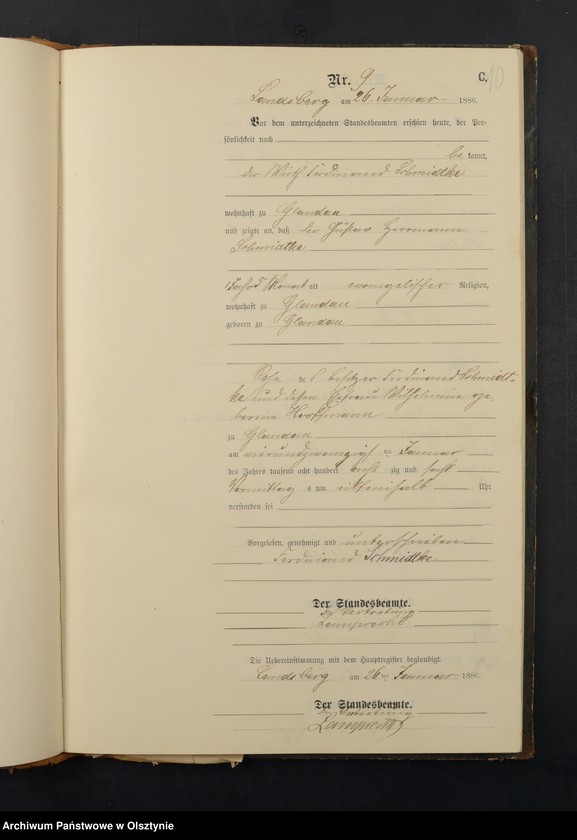 10
Nr. 9 C.
Landsberg am 26. Januar 1886.
Vor dem unterzeichneten Standesbeamten erschien heute, der Per-
sönlichkeit nach
be kannt,
der Wirth Ferdinand Schmidtke
wohnhaft zu Glandau
und zeigte an, daß der Gustav Herrmann
Schmidtke
Monat alt evangelischer Religion,
wohnhaft zu Glandau
geboren zu Glandau
Sohn des Besitzer Ferdinand Schmidt-
ke und dessen Ehefrau Wilhelmine ge-
borene
zu Glandau
am vierundzwanzigsten Januar
des Jahres tausend acht hundert acht zig und sechs
Vormittag s um Uhr
verstorben sei
Vorgelesen, genehmigt und unterschrieben
Ferdinand Schmidtke
Der Standesbeamte.
In Vertretung
Lamprecht
Die Uebereinstimmung mit dem Hauptregister beglaubigt.
Landsberg am 26ten Januar 1886.
Der Standesbeamte.
In Vertretung
Lamprecht
Archiwum Państwowe w Olsztynie